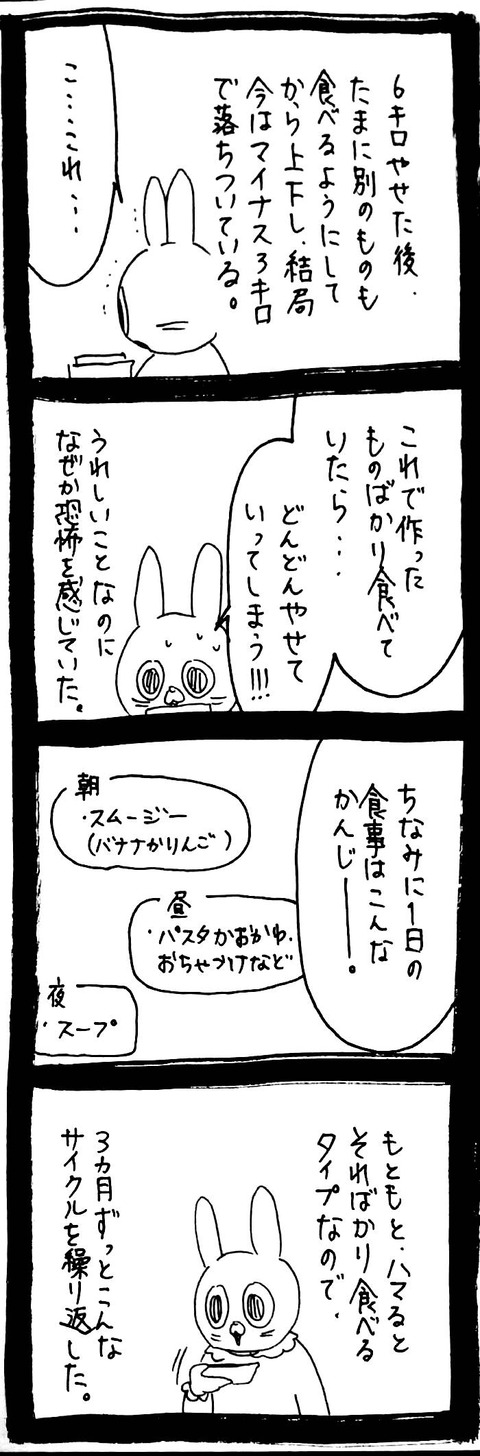 6キロやせた後、
たまに別のものも
食べるようにして
から上下し、結局
今はマイナス3キロ
で落ちついている。
こ・・・これ・・・
これで作った
ものばかり食べて
いたら・・・
どんどんやせて
いってしまう!!!
うれしいことなのに
なぜか恐怖を感じていた。
ちなみに1日の
食事はこんな
かんじー。
朝
・スムージー
(バナナかりんご)
昼
・パスタかおかゆ、
おちゃづけなど
夜
・スープ
もともと、ハマると
そればかり食べる
タイプなので、
3ヵ月ずっとこんな
サイクルを繰り返した。